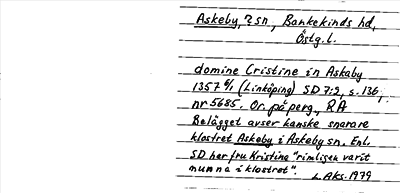 Askeby, ? sn, Bankekinds hd,
Östg. l.
domine Cristine in Askaby
1357 6/1 (Linköping) SD 7:2, s. 136,
nr 5685. Or. på perg., RA
Belägget avser kanske snarare
klostret Askeby i Askeby sn. Enl.
SD her fru Kristina "rimligen varit
nunna i klostret".
L. Aks. 1979